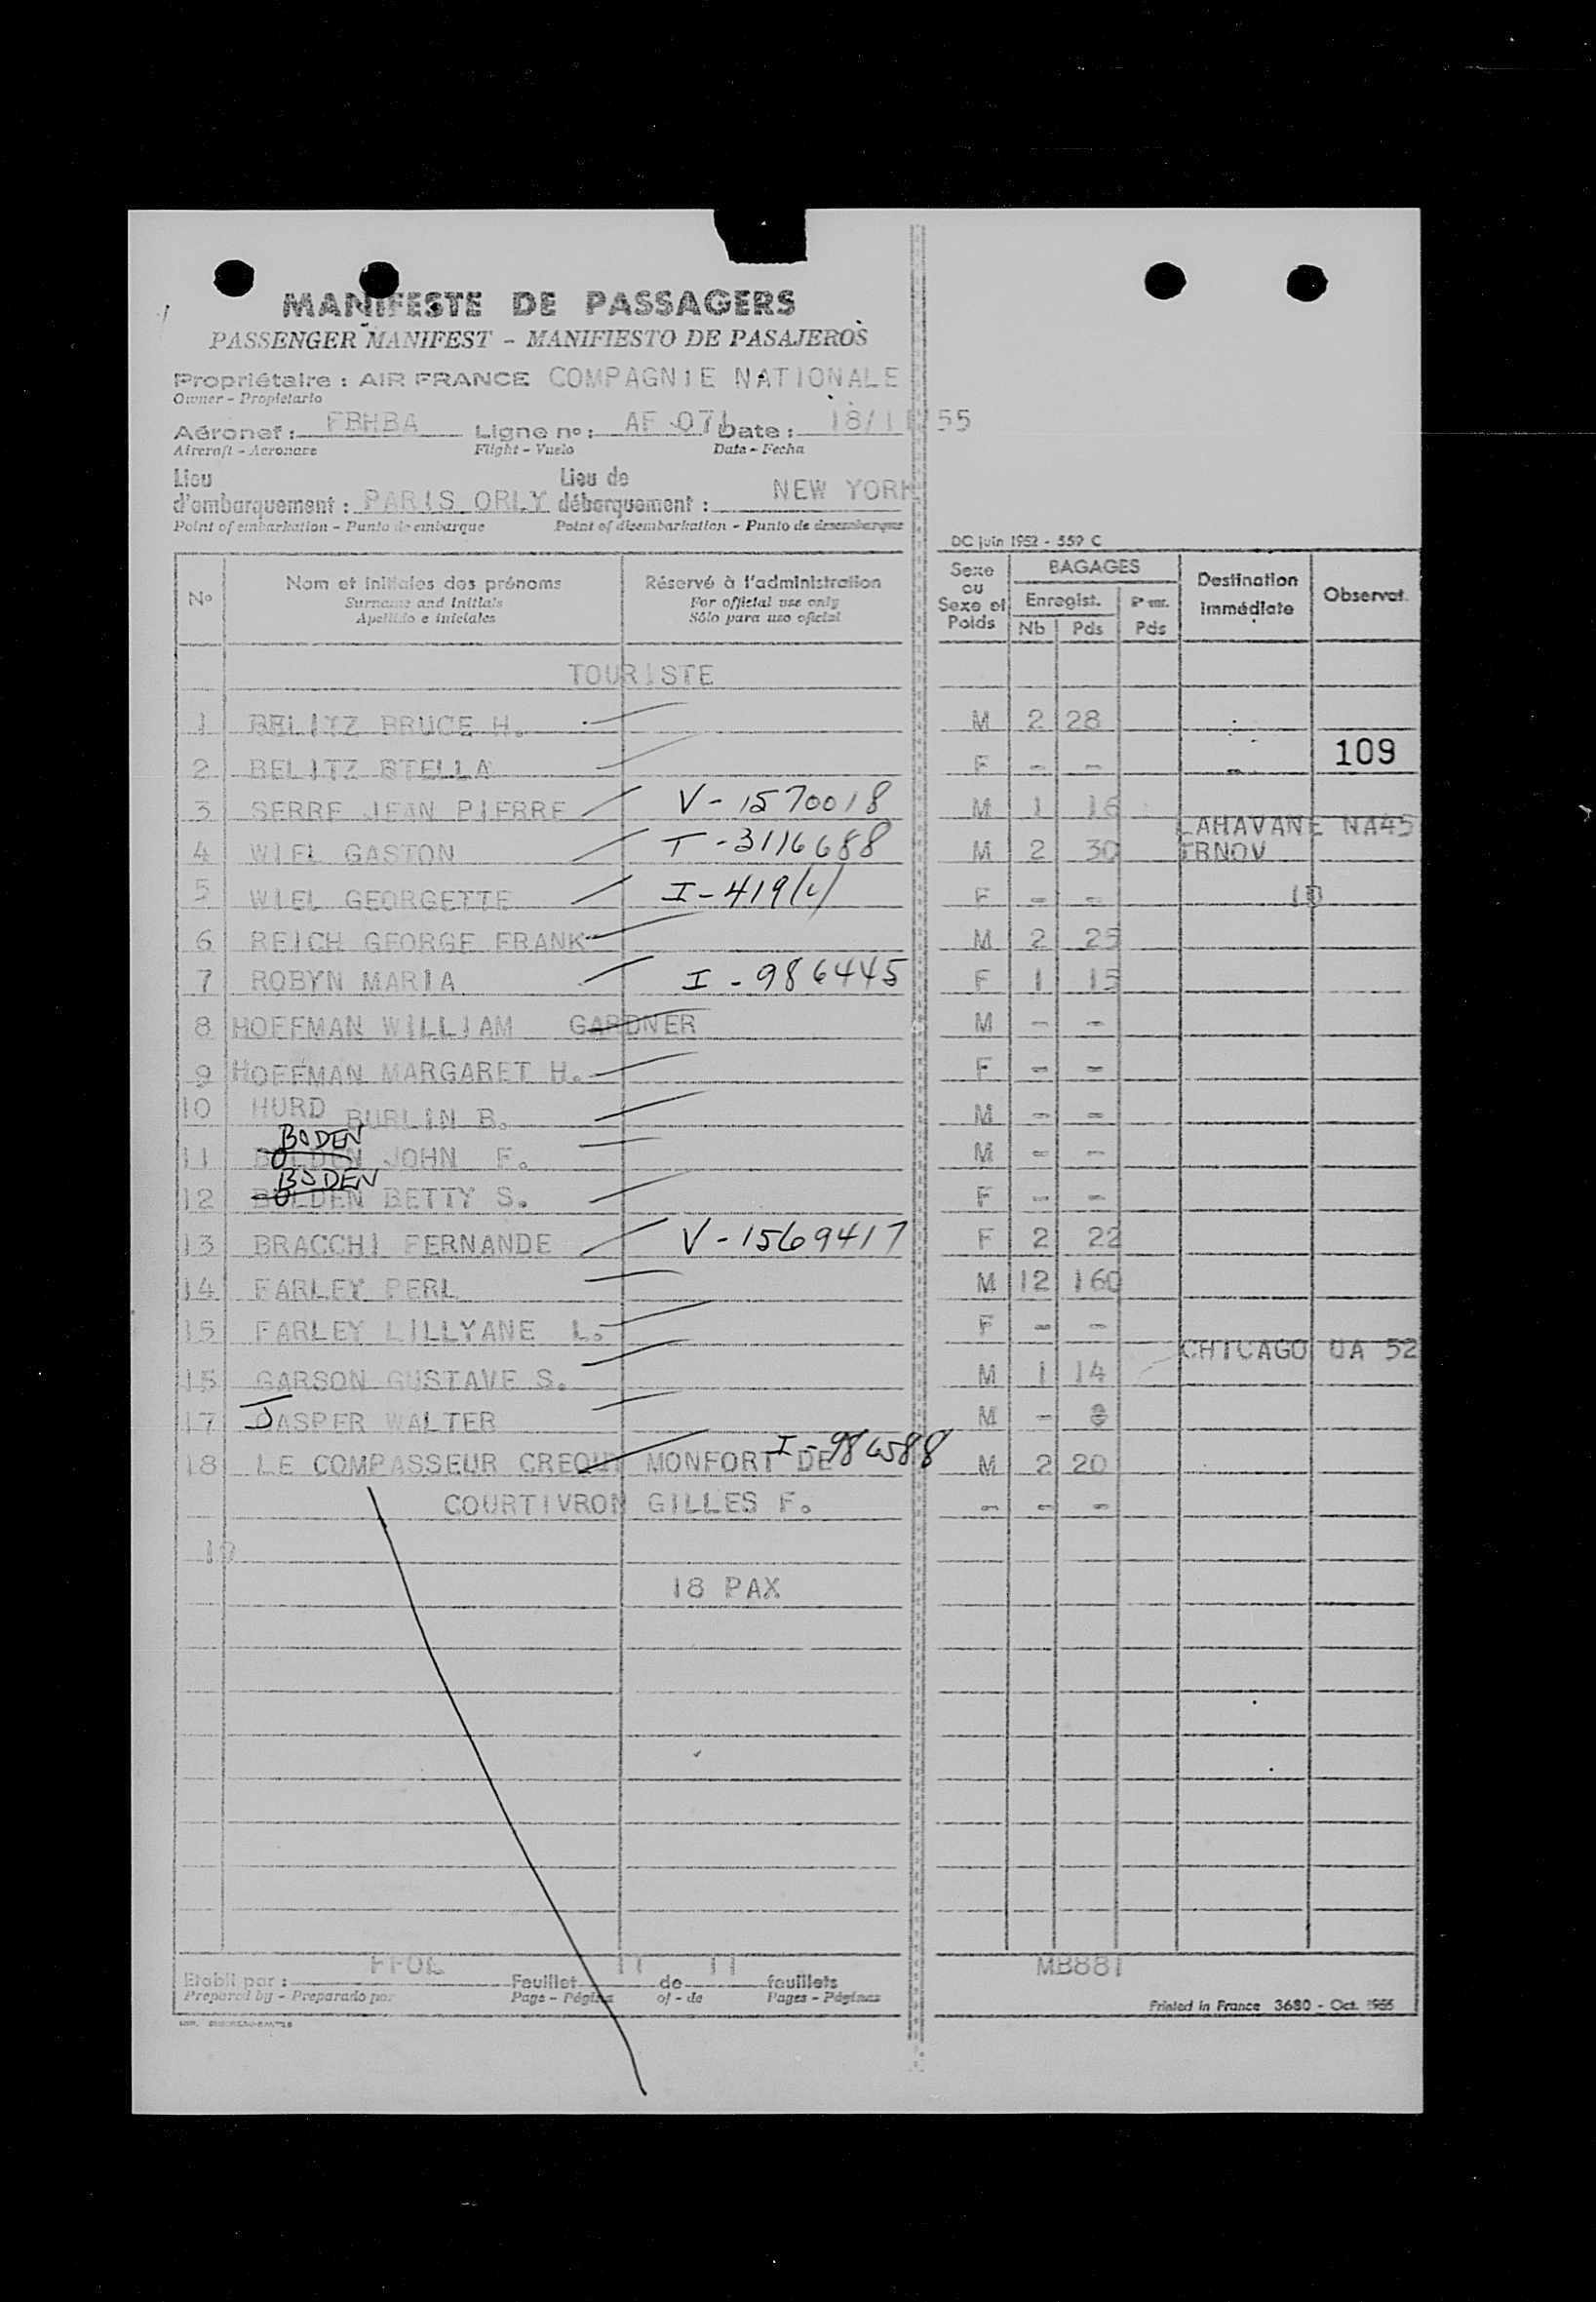 MANIFESTE DE PASSAGERS
PASSENGER MANIFEST - MANIFIESTO DE PASAJEROS
Propriétaire : AIR FRANCE COMPAGNIE NATIONALE
Owner - Propietario
Aéronef : FBHBA Ligne no : AF 071 Date : 18/11 55
Aircraft - Aeronave Flight - Vuelo Date - Fecha
Lieu Lieu de
d'embarquement : PARIS ORLY débarquement : NEW YORK
Point of embarkation - Punto de embarque Point of disembarkation - Punto de desembarque
DC juin 1952 - 559 C
No Nom et initiales des prénoms Réservé à l'administration Sexe ou Sexe et Poids BAGAGES Destination immédiate Observat.
Surname and initials For official use only Enregist.
Apellido e iniciales Sólo para uso oficial Nb Pds Pds
TOURISTE
1 BELITZ BRUCE H. M 2 28
2 BELITZ STELLA F - - - 109
3 SERRE JEAN PIERRE V-1570018 M 1 16
LAHAVANE NA45
4 WIEL GASTON T-3116688 M 2 30 TRNOV
5 WIEL GEORGETTE I-419/ F - - ID
6 REICH GEORGE FRANK M 2 25
7 ROBYN MARIA I-986445 F 1 15
8 HOFFMAN WILLIAM GARDNER M - -
9 HOFFMAN MARGARET H. F - -
10 HURD BURLIN B. M - -
BODEN
11 BOLDEN JOHN F. M - -
BODEN
12 BOLDEN BETTY S. F - -
13 BRACCHI FERNANDE V-1569417 F 2 22
14 FARLEY PERL M 12 160
15 FARLEY LILLYANE L. F - -
CHICAGO UA 52
15 GARSON GUSTAVE S. M 1 14
17 JASPER WALTER M -
18 LE COMPASSEUR CREQUY MONFORT DE I-986588 M 2 20
COURTIVRON GILLES F. - - -
19
18 PAX
Etabli par : Feuillet 11 de 11 feuillets MB881
Prepared by - Preparado por Page - Página of - de Pages - Páginas
Printed in France 3680 - Oct. 1955